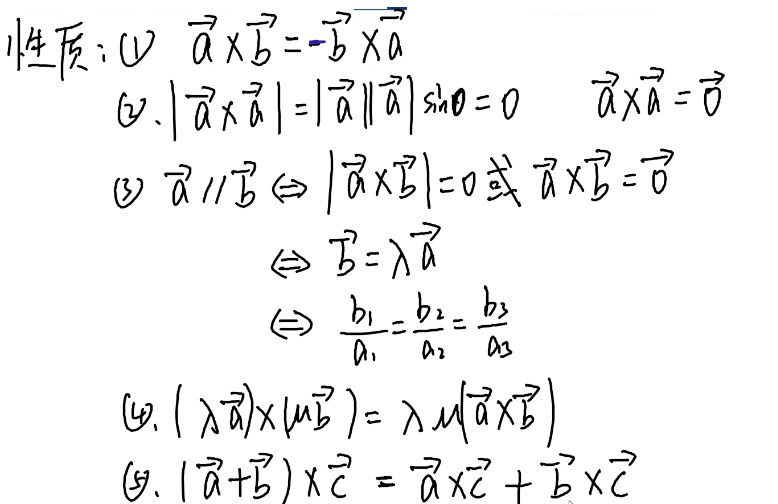 性质：① $\vec{a} \times \vec{b} = -\vec{b} \times \vec{a}$
②. $|\vec{a} \times \vec{a}| = |\vec{a}||\vec{a}| \sin 0 = 0$ $\vec{a} \times \vec{a} = \vec{0}$
③ $\vec{a} // \vec{b} \Leftrightarrow |\vec{a} \times \vec{b}| = 0$ $\vec{a} \times \vec{b} = \vec{0}$
$\Leftrightarrow \vec{b} = \lambda \vec{a}$
$\Leftrightarrow \frac{b_1}{a_1} = \frac{b_2}{a_2} = \frac{b_3}{a_3}$
④. $(\lambda \vec{a}) \times (\mu \vec{b}) = \lambda \mu (\vec{a} \times \vec{b})$
⑤. $(\vec{a} + \vec{b}) \times \vec{c} = \vec{a} \times \vec{c} + \vec{b} \times \vec{c}$